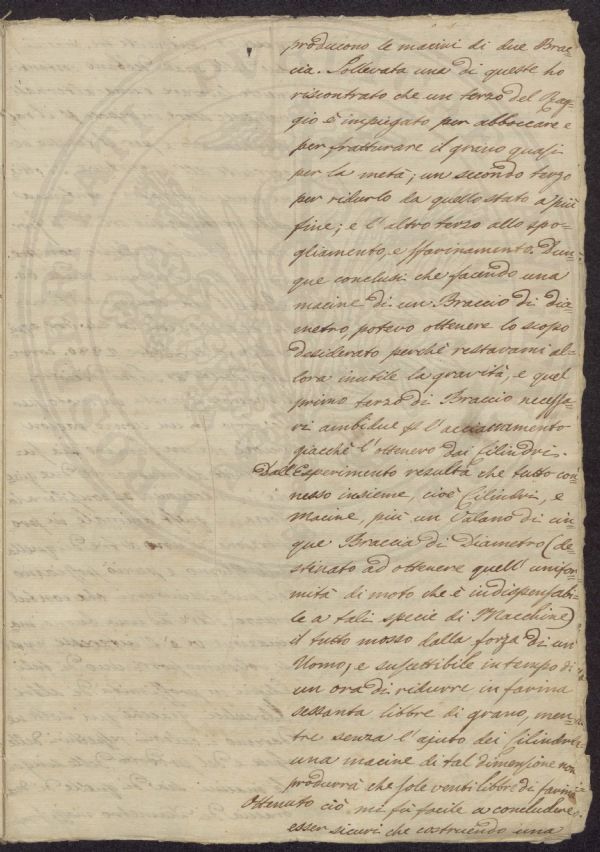 producono le macini di due Brac=
cia. Sollevata una di queste ho
riscontrato che un terzo del Rag=
gio è impiegato per abboccare e
per fratturare il grano quasi
per la metà; un secondo terzo
per ridurlo da quello stato a più
fine; e l'altro terzo allo spo=
gliamento, e sfarinamento. Dun=
que conclusi che facendo una
macine di un Braccio di dia=
metro, potevo ottenere lo scopo
desiderato perchè restavami al=
lora inutile la gravità, e quel
primo terzo di Braccio necessa=
ri ambidue l'acciaccamento
giacchè l'ottenevo dai Cilindri.
Dall'Esperimento resulta che tutto con=
nesso insieme, cioè Cilindri, e
Macine, più un Volano di cin=
que Braccia di Diametro (de=
stinato ad ottenere quell'unifor=
mità di moto che è indispensabi=
le a tali specie di Macchine)
il tutto mosso dalla forza di un
Uomo, e suscettibile in tempo di
un ora di ridurre in farina
sessanta libbre di grano, men=
tre senza l'ajuto dei Cilindri
una macine di tal dimensione non
produrrà che sole venti libbre di farina
Ottenuto ciò, mi fu facile a concludere
esser sicuri che costruendo una